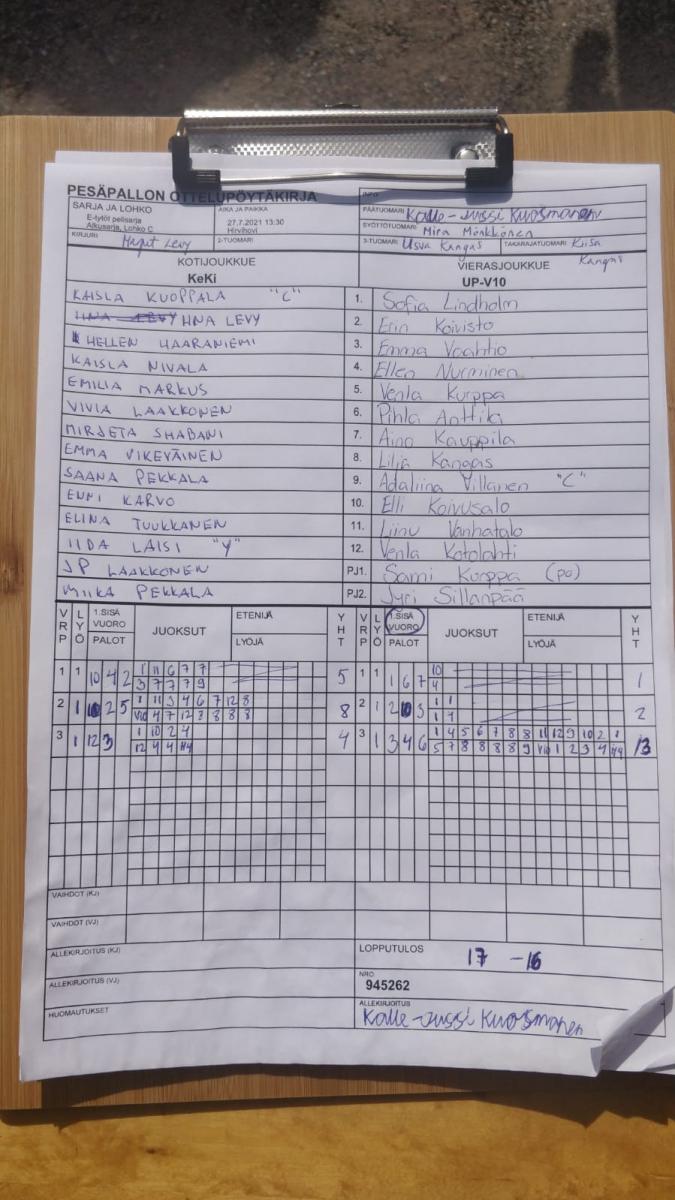 PESÄPALLON OTTELUPÖYTÄKIRJA
SARJA JA LOHKO
E-tytöt pelisarja
Alkusarja, Lohko C
AIKA JA PAIKKA
27.7.2021 13:30
Hirvihovi
INFO
PÄÄTUOMARI Kalle-Jussi Kuosmanen
SYÖTTÖTUOMARI Mira Mönkkönen
KIRJURI Levy
2-TUOMARI
3-TUOMARI Usva Kangas
TAKARAJATUOMARI Kiisa Kangas
KOTIJOUKKUE
KeKi
VIERASJOUKKUE
UP-V10
KAISLA KUOPPALA "C"
1. Sofia Lindholm
IINA LEVY
2. Erin Koivisto
HELLEN HAARANIEMI
3. Emma Vaahtio
KAISLA NIVALA
4. Ellen Nurminen
EMILIA MARKUS
5. Venla Kurppa
VIVIA LAAKKONEN
6. Pihla Anttila
MIRJETA SHABANI
7. Aino Kauppila
EMMA VIKEVÄINEN
8. Lilja Kangas
SAANA PEKKALA
9. Adaliina Villanen "C"
ENNI KARVO
10. Elli Koivusalo
ELINA TUUKKANEN
11. Liinu Vanhatalo
IIDA LAISI "V"
12. Venla Kotolahti
JP LAAKKONEN
PJ1. Sami Kurppa (po)
MIIKA PEKKALA
PJ2. Jyri Sillanpää
VRP LYÖ 1.SISÄ VUORO PALOT JUOKSUT ETENIJÄ LYÖJÄ YHT
VRP LYÖ 1.SISÄ VUORO PALOT JUOKSUT ETENIJÄ LYÖJÄ YHT
1 1 10 4 2 1 11 6 7 7 5
3 7 7 7 9
1 1 1 6 7 10 1
4
2 1 10 2 5 1 11 3 4 6 7 12 8 8
V10 4 7 12 3 8 8 8
2 1 2 10 3 1 1 2
1 4
3 1 12 3 1 10 2 4 4
12 4 4 H4
3 1 3 4 6 1 4 5 6 7 8 8 11 12 9 10 2 1 13
5 7 8 8 8 8 9 V10 1 2 3 4 H9
VAIHDOT (KJ)
VAIHDOT (VJ)
ALLEKIRJOITUS (KJ)
LOPPUTULOS 17 - 16
ALLEKIRJOITUS (VJ)
NRO
945262
HUOMAUTUKSET
ALLEKIRJOITUS
Kalle-Jussi Kuosmanen